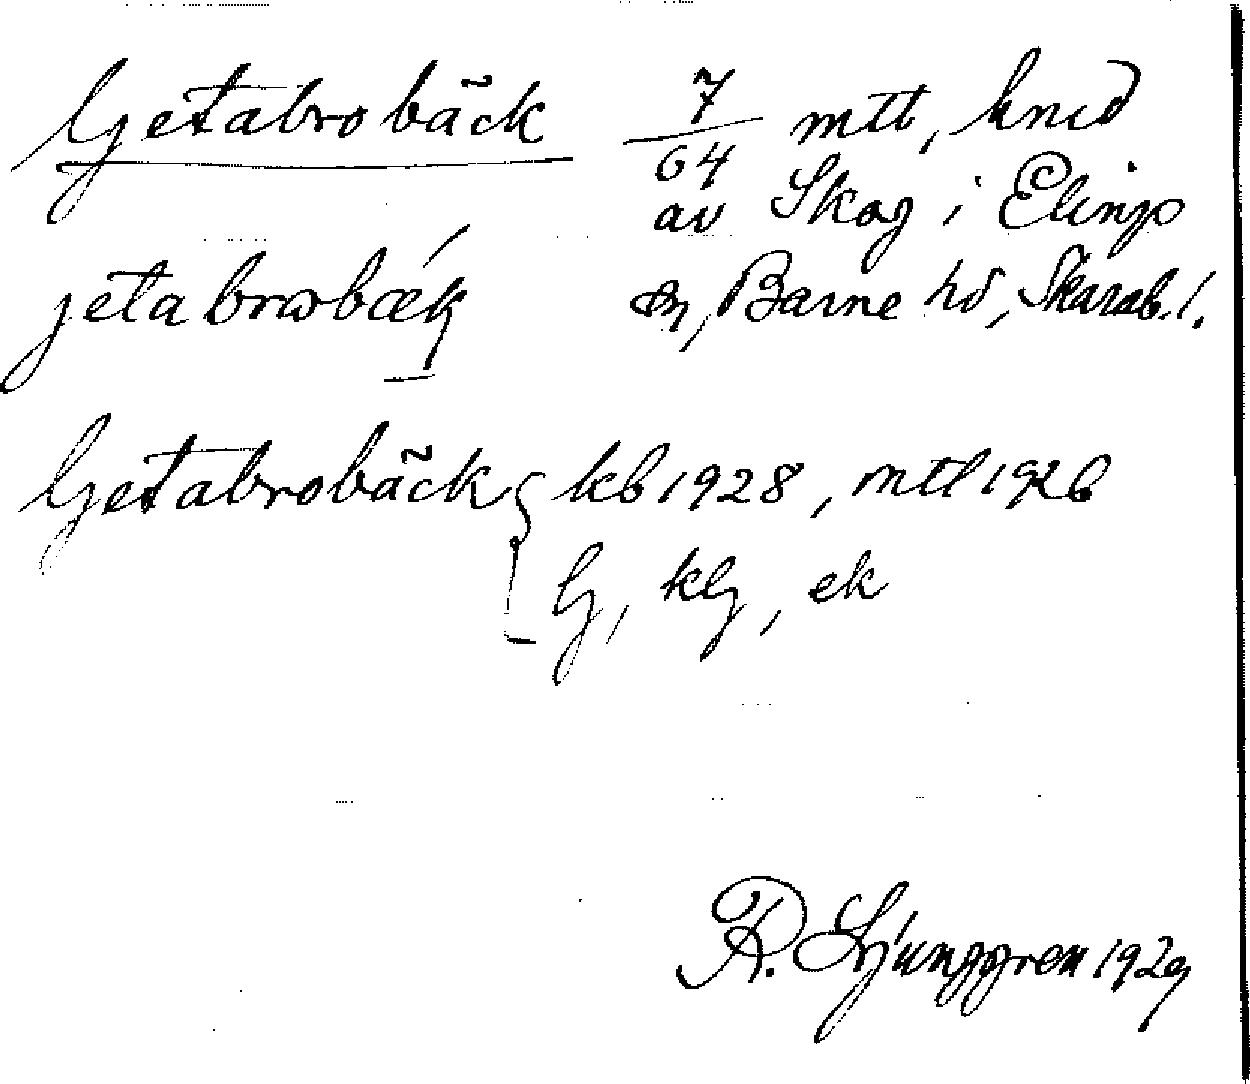 Getabrobäck 7/64 mtl, knId
av Skog i Elings
sn, Barne hd, Skarab. l.
jetabrωbæk
Getabrobäck { kb 1928, mtl 1926
G, kG, ek
R. Ljunggren 1929